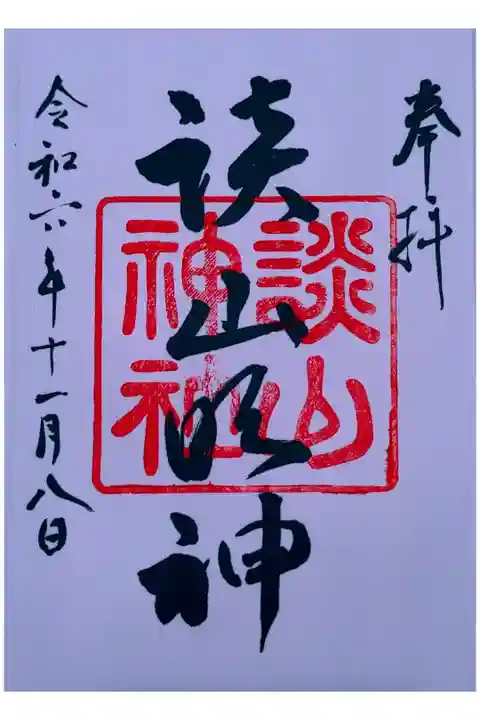 奉拝
談山明神
談山
神社
令和六年十一月八日